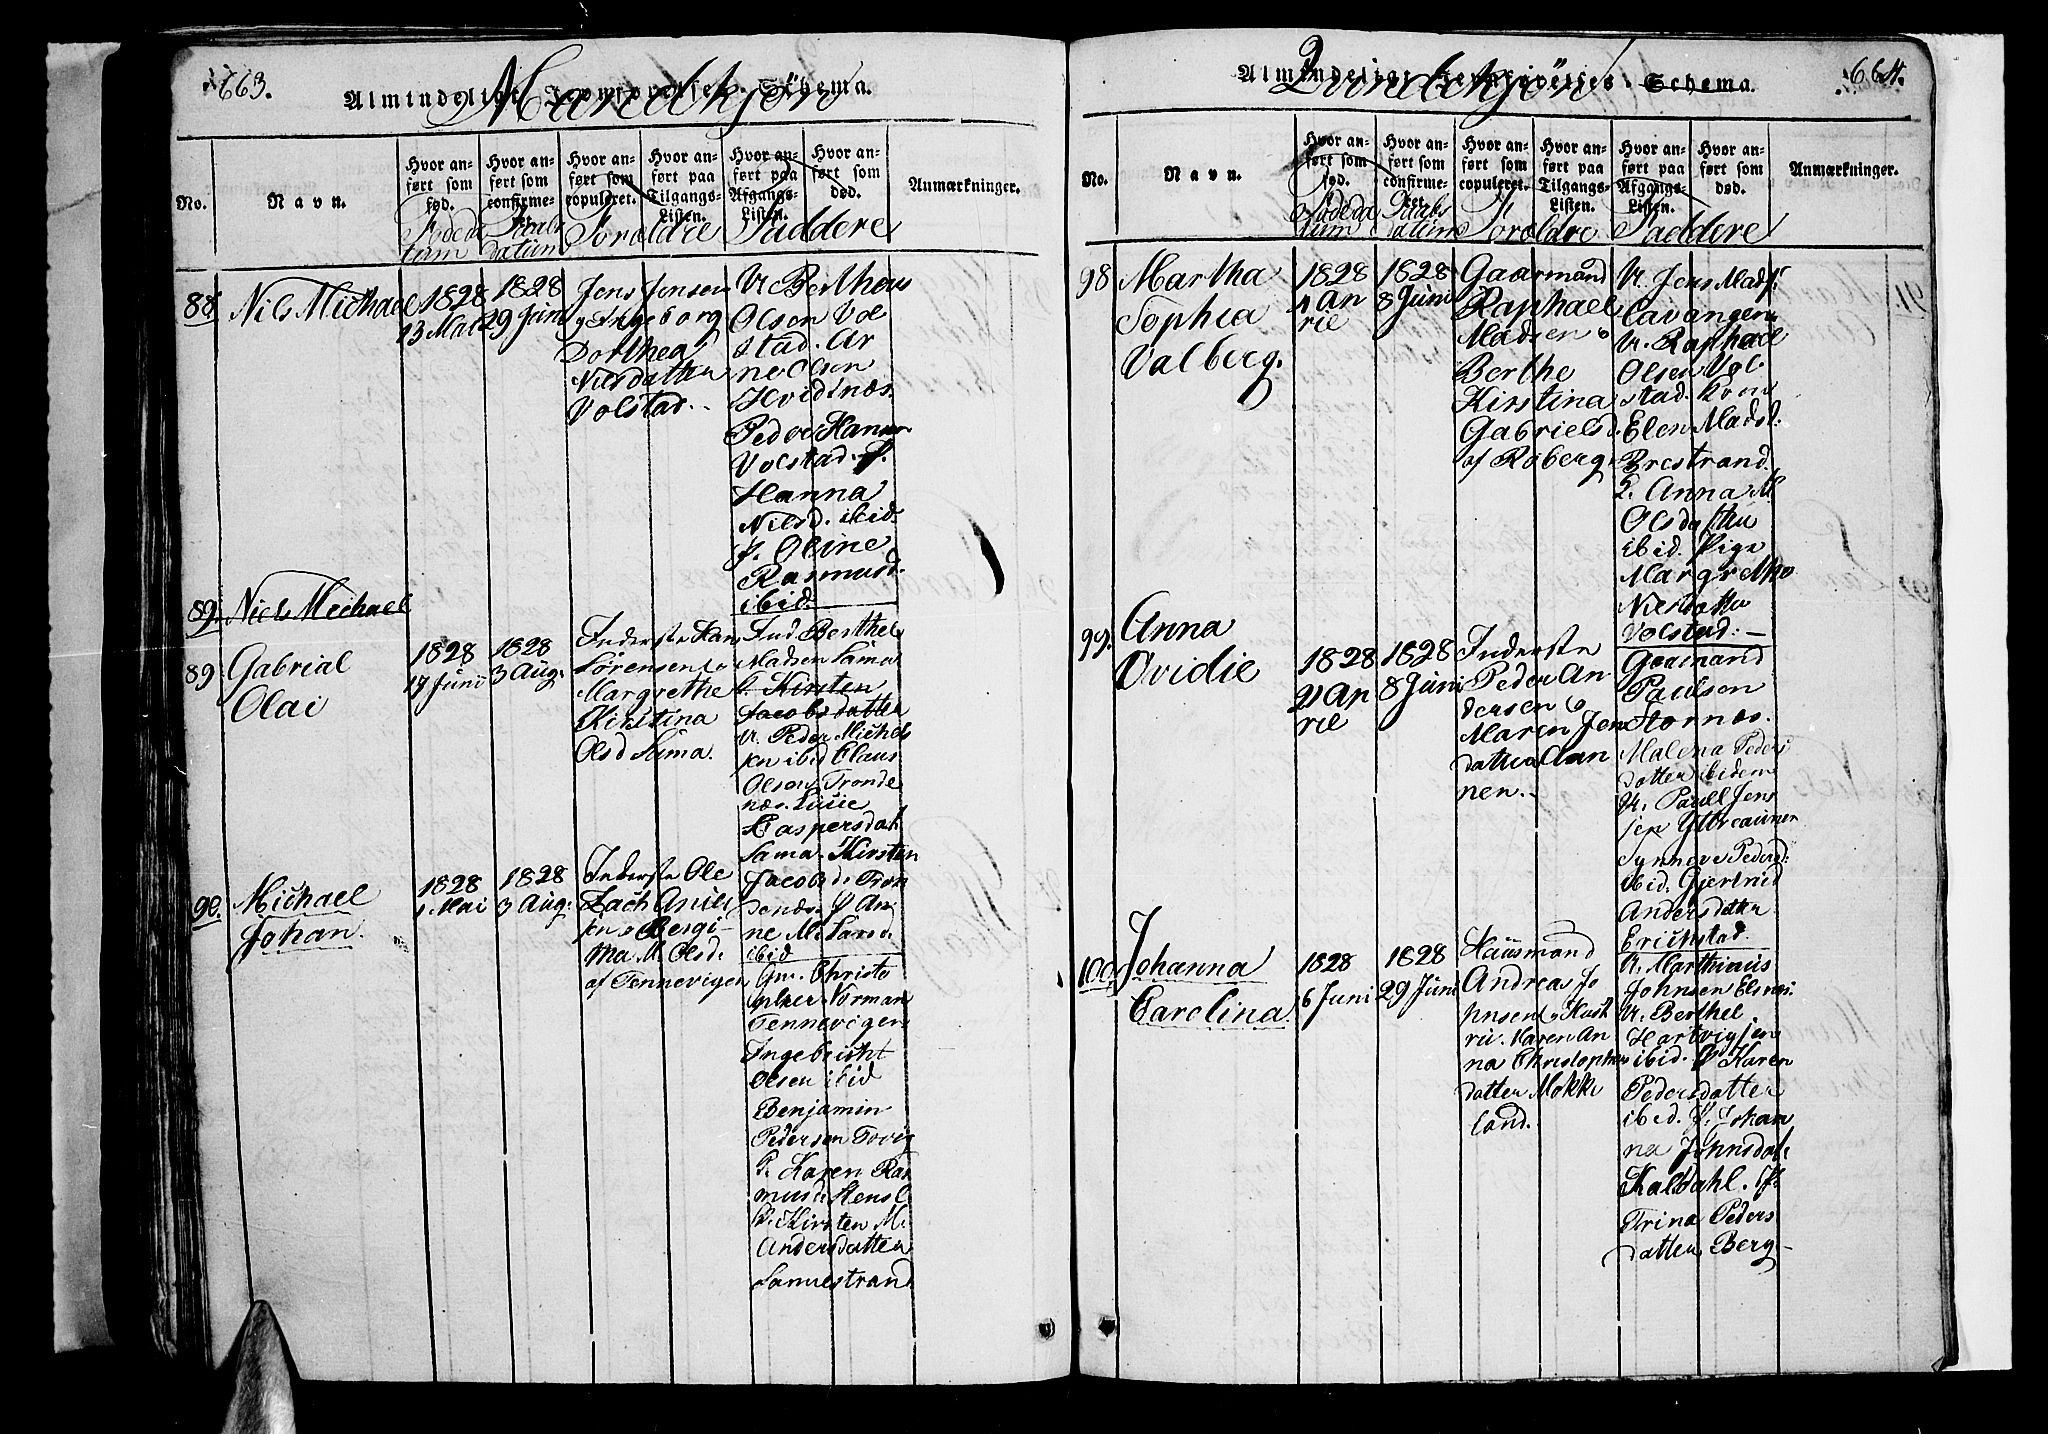 663.
Almindeligt Jevnførelses-Schema.
Mandkjøn
No.
Navn.
Hvor anført som fød.
Hvor anført som confirmeret.
Hvor anført som copuleret.
Hvor anført paa Tilgangs-Listen.
Hvor anført paa Afgangs-Listen.
Hvor anført som død.
Anmærkninger.
Føde da
tum
Daabs
datum
Forældre
Faddere
88
Nils Michael
1828
13 Mai
1828
29 Juni
Jens Jensen
og Ingeborg
Dorthea
Nilsdatter
Volstad.
Bertheus
Olsen Vol
stad. Ar
ne Olsen
Hvidnæs.
Peder Hansen
Volstad. P.
Hanna
Nilsd. ibid.
P. Oline
Rasmusd.
ibid.
89.
Niels Michael
89
Gabrial
Olai
1828
17 Junii
1828
3 Aug.
Inderste Han
Sørensen
Margrethe
Kirstina
Olsd Sama.
Ind. Berthel
Madsen Sama
Kirsten
Jacobsdatter
Peder Michels
sen ibid Claus
Olsen Tronde
næs.
Caspersdat
Sama. Kirsten
Jacobsd. Tron
denæs. P An
ne M.
ibid
90.
Michael
Johan.
1828
1 Mai
1828
3 Aug.
Inderste Ole
Zach
sen Bergi-
tha M. Olsd.
af Tennevigen
Gm. Christo
pher Norman
Tennevigen
Ingebricht
Olsen ibid
Benjamin
Pedersen
P. Karen Ras
musd.
P. Kirsten M.
Andersdatter
Samestrand
664.
Almindeligt Jevnførelses-Schema.
Qvindekjøn
No.
Navn.
Hvor anført som fød.
Hvor anført som confirmeret.
Hvor anført som copuleret.
Hvor anført paa Tilgangs-Listen.
Hvor anført paa Afgangs-Listen.
Hvor anført som død.
Anmærkninger.
Føde da
tum
Daabs
datum
Forældre
Faddere
98
Martha
Sophia
Valberg.
1828
4 Ap
ril
1828
8 Juni
Gaarmand
Raphael
Madsen
Berthe
Kirstina
Gabrielsd.
af Roberg.
Jens Mads.
Cavangen
Raphael
Olsen Vol
stad. Kone
Elen Madsd.
Brestrand
Anna M.
Olsdatter
ibid. Pige
Margrethe
Nilsdatter
Volstad.
99.
Anna
Ovidie
1828
21 Ap
ril
1828
8 Juni
Inderste
Peder An
dersen
Maren Jens
datter Aun
nen.
Gaarmand
Paulsen
Stornæs.
Malena Peders
datter ibidem
Paull Jens
sen
Synneve Pedersd.
ibid. Gjertrud
Andersdatter
Erichstad.
100.
Johanna
Carolina
1828
6 Juni
1828
29 Juni
Huusmand
Andreas Jo
hnsen Hust
rue. Karen An
na Christophers
datter Mokke
land.
Marthinus
Johnsen
Berthel
Hartvigsen
ibid. Karen
Pedersdatter
ibid. P. Johan
na Johnsdat.
Kaldahl. P.
Trina Peders
datter Berg